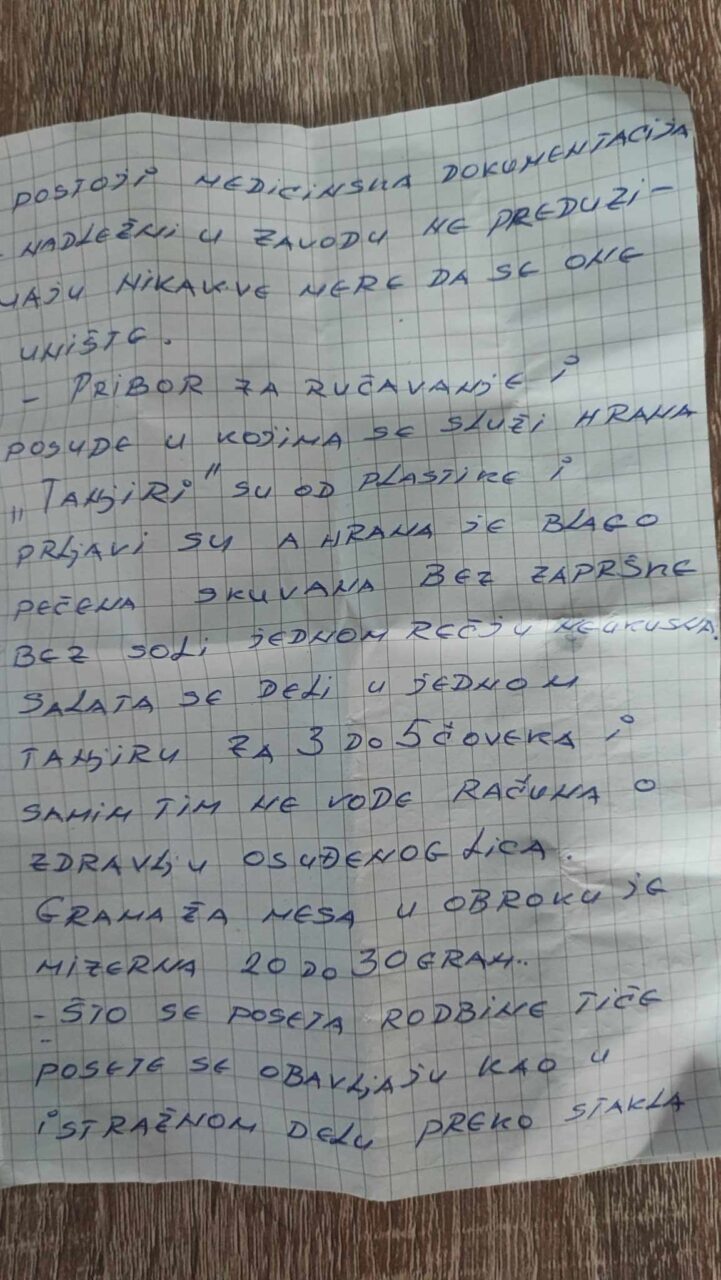 POSTOJI MEDICINSKA DOKUMENTACIJA
- NADLEŽNI U ZAVODU NE PREDUZI-
MAJU NIKAKVE MERE DA SE ONE
UNIŠTE.
- PRIBOR ZA RUČAVANJE I
POSUDE U KOJIMA SE SLUŽI HRANA
„TANJIRI" SU OD PLASTIKE I
PRLJAVI SU A HRANA JE BLAGO
PEČENA SKUVANA BEZ ZAPRŠKE
BEZ SOLI JEDNOM REČJU NEUKUSNA.
SALATA SE DELI U JEDNOM
TANJIRU ZA 3 DO 5 ČOVEKA I
SAMIM TIM NE VODE RAČUNA O
ZDRAVLJU OSUĐENOG LICA.
GRAMAŽA MESA U OBROKU JE
MIZERNA 20 DO 30 GRAM..
- ŠTO SE POSETA RODBINE TIČE
POSETE SE OBAVLJAJU KAO U
ISTRAŽNOM DELU PREKO STAKLA